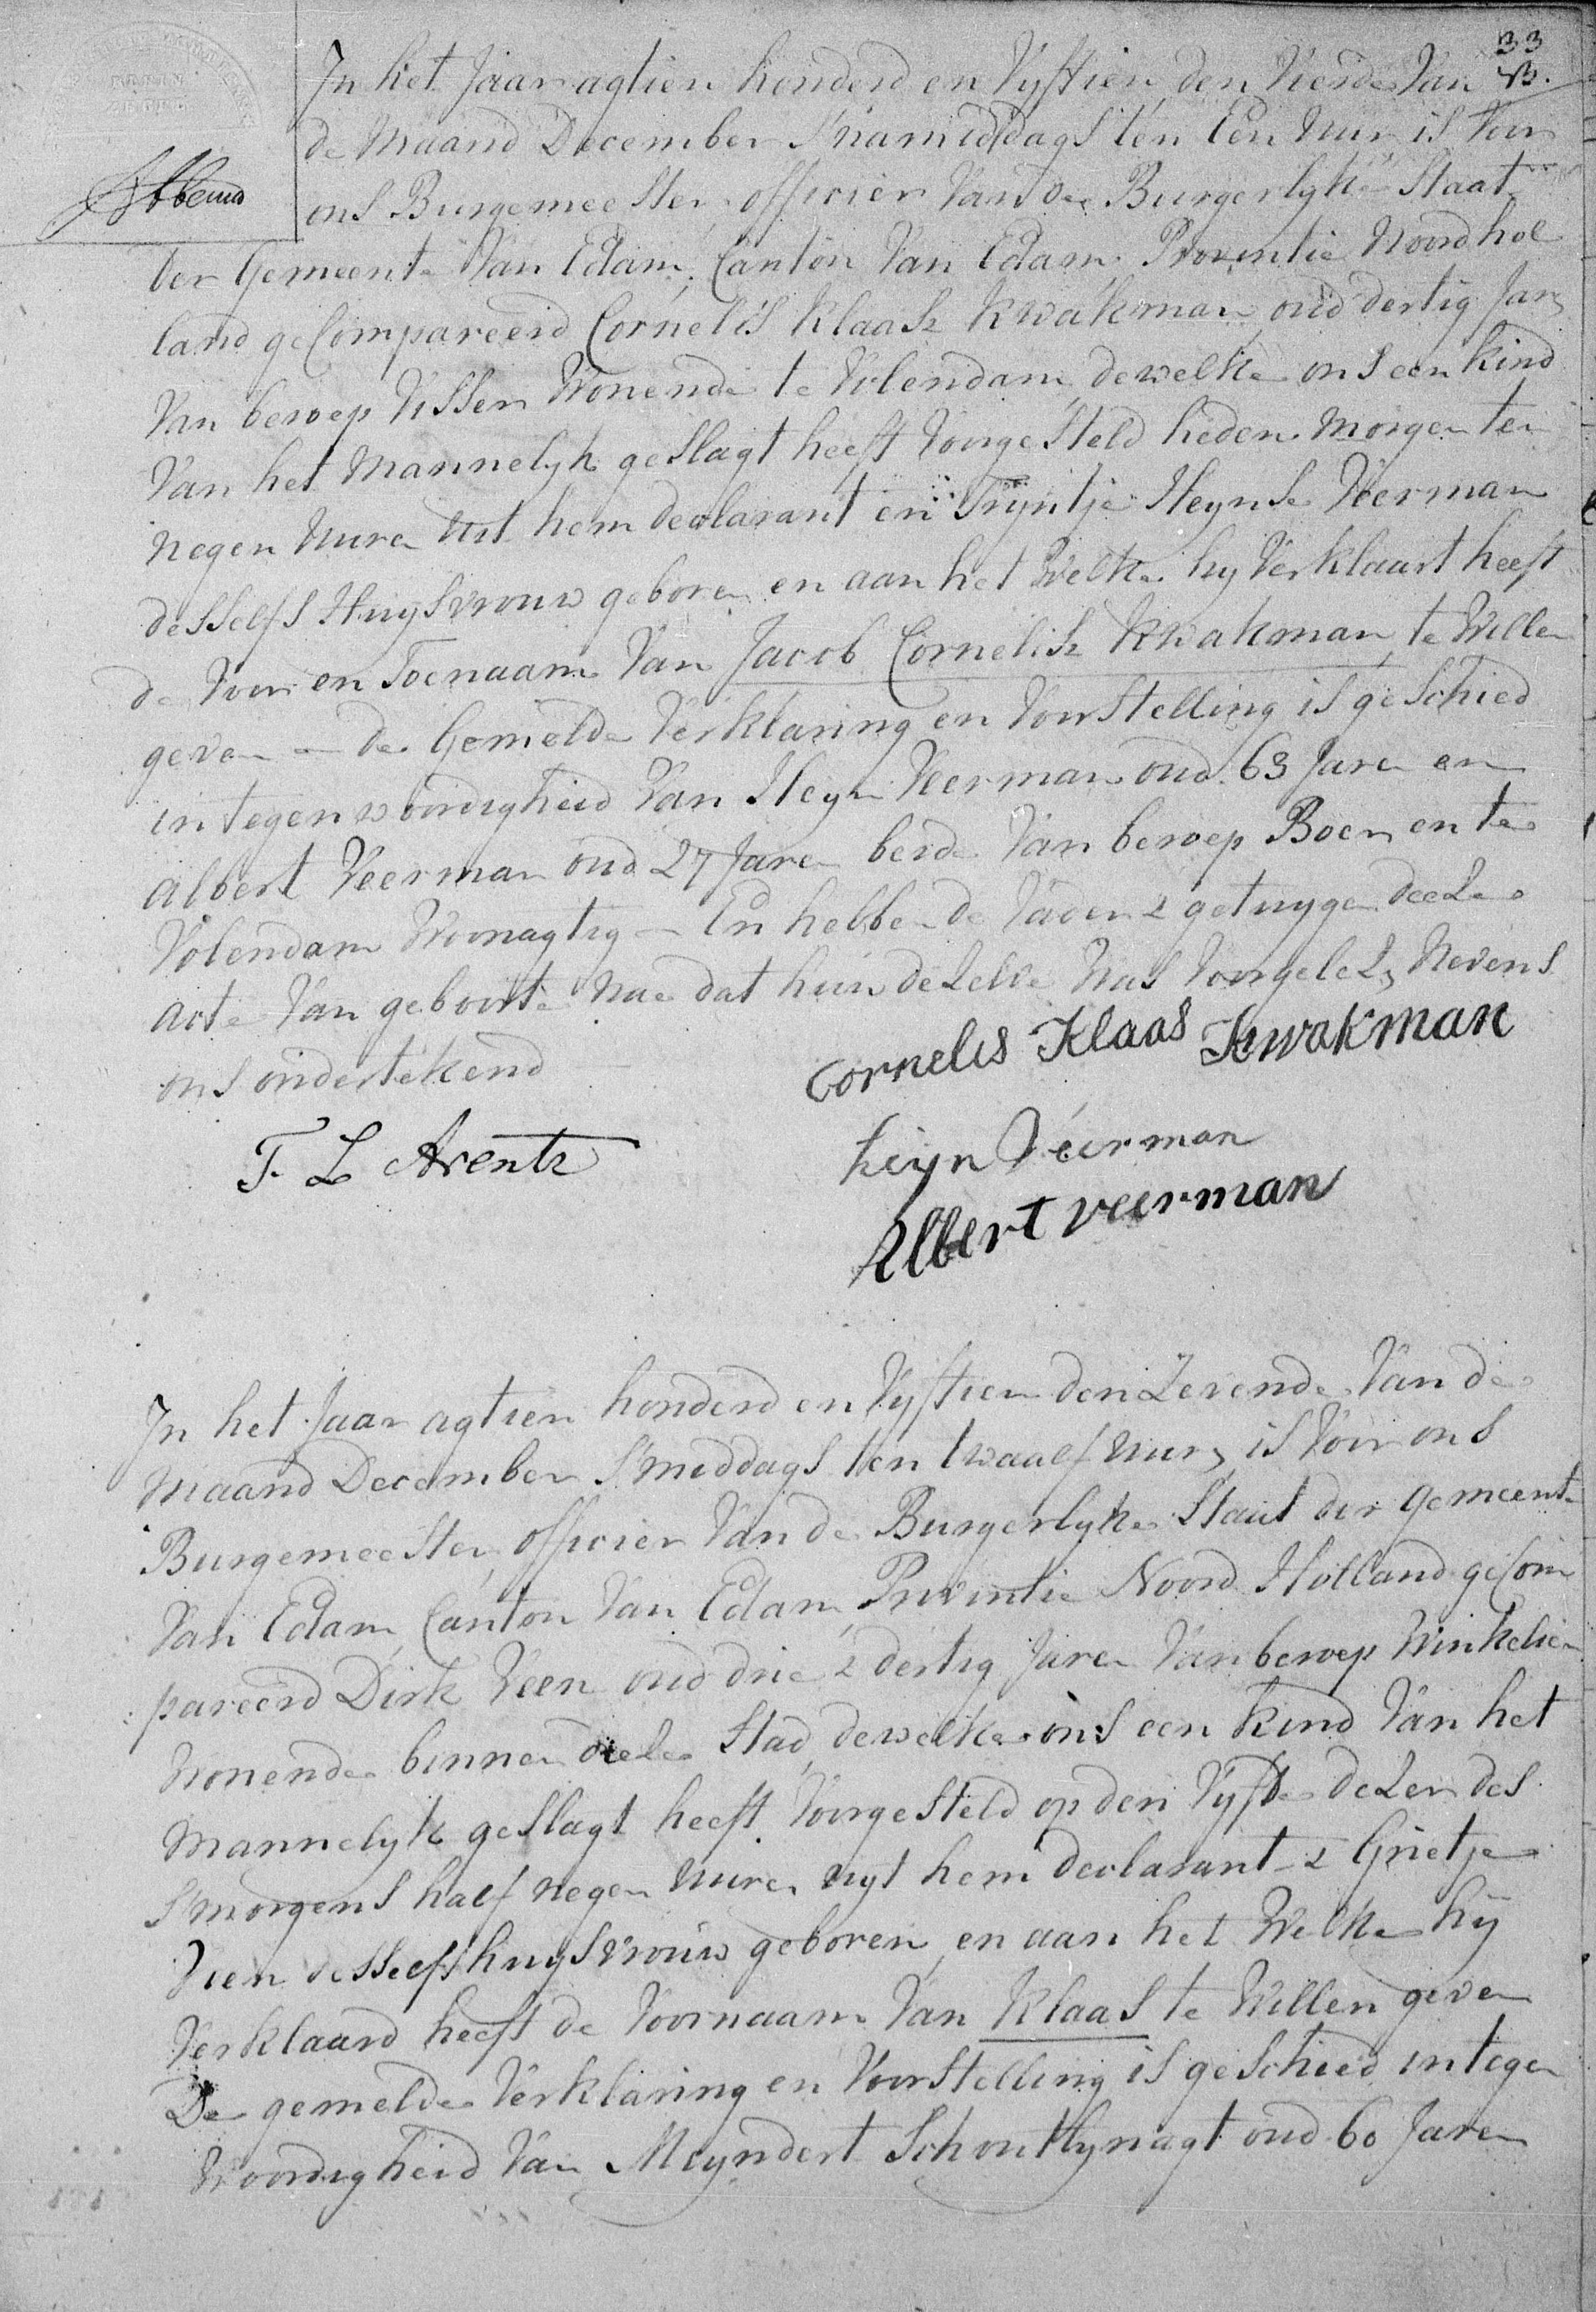 33
B.
In het Jaar agtien honderd en Vyftien den Vierde Van
de Maand December S'namiddags ten Een Uur is Voor
ons Burgemeester officier Van de Burgerlyke Staat
der Gemeente Van Edam, Canton Van Edam Provintie Noordhol
land geCompareerd Cornelis Klaasz Kwakman oud dertig Jar
Van beroep Visser Wonende te Volendam dewelke ons een kind
Van het Mannelyk geslagt heeft Voorgesteld heden Morgen ten
negen Uuren Uit hem declarant en Tryntje Heynse Veerman
desselfs Huysvrouw geboren en aan het Welke hy Verklaart heeft
de Voor en Toenaam Van Jacob Cornelisz Kwakman te Willen
geven — de Gemelde Verklaring en Voorstelling is geschied
in tegenwoordigheid Van Heyn Veerman oud 63 Jaren en
Albert Veerman oud 27 Jaren beide Van beroep Boer en te
Volendam Woonagtig — En hebben de Vader & getuygen deeze
acte Van geboorte nae dat hun dezelve was Voorgeleezen Nevens
ons ondertekend
Cornelis Klaas Kwakman
T. L Arentz
heyn Veerman
Albert veerman
In het Jaar agtien honderd en Vyftien den Zevende Van de
Maand December S'middags ten twaalf uur, is Voor ons
Burgemeester officier Van de Burgerlyke Staat der Gemeente
Van Edam, Canton Van Edam Provintie Noord Holland geCom
pareerd Dirk Veen oud drie & dertig Jaren Van beroep Winkelier
Wonende binnen deeze Stad, dewelke ons een kind Van het
Mannelyk geslagt heeft Voorgesteld op den Vyfde dezer des
S'morgens half negen uuren uyt hem declarant & Grietje
desselfs huysvrouw geboren, en aan het Welke hy
Verklaard heeft de Voornaam Van Klaas te Willen geven
De gemelde Verklaring en Voorstelling is geschied in tegen
woordigheid Van Meyndert Schouthynagt oud 60 Jaren